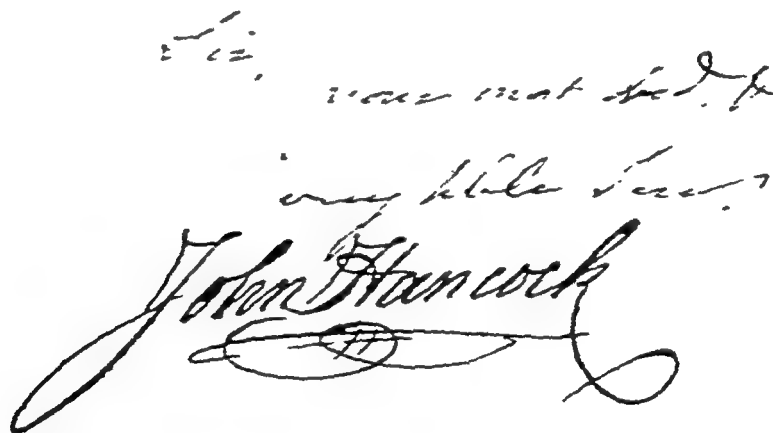 Sir,
your most Obed. &
very hble Serv.t
John Hancock